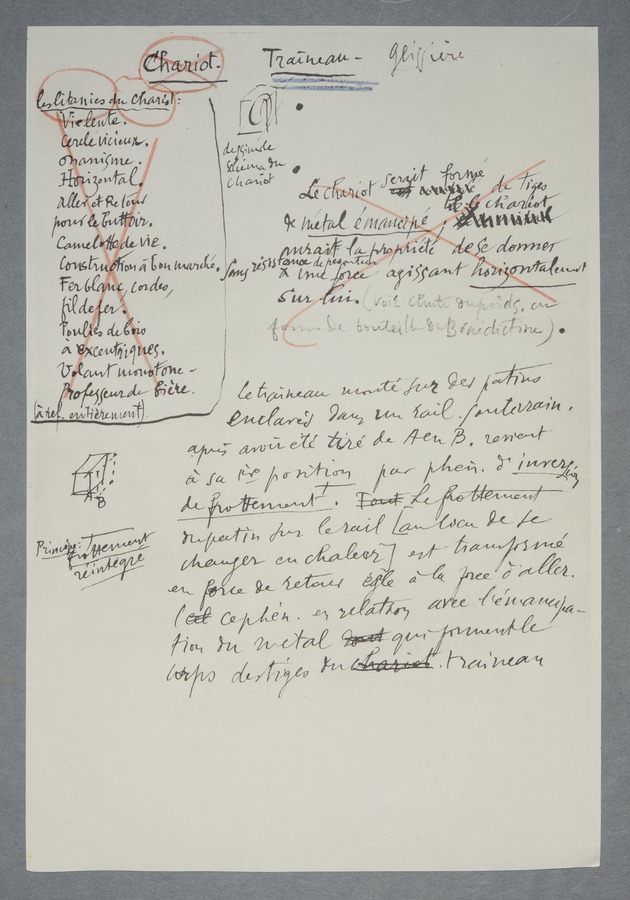 Chariot. Traîneau - Glissière
les litanies du Chariot :
Vie lente.
Cercle vicieux.
onanisme.
Horizontal.
aller et Retour
pour le buttoir.
Camelotte de vie.
Construction à bon marché.
Fer blanc, cordes,
fil de fer.
Poulies de bois
à excentriques.
Volant monotone -
Professeur de bière.
(à ref. entièrement).
dessin de
Schéma du
Chariot
Le chariot serait formé de tiges
de métal émancipé. le chariot
aurait la propriété de se donner
sans résistance de pesanteur
à une force agissant horizontalement
sur lui. (voir chute du poids, en
forme de bouteille de Bénédictine).
Le traîneau monté sur des patins
enclavés dans un rail souterrain.
après avoir été tiré de A en B. revient
à sa 1ère position par phén. d'inversion
de frottement. Tout Le frottement
du patin sur le rail [au lieu de se
changer en chaleur] est transformé
en force de retour égle à la force d'aller.
(cet ce phén. en relation avec l'émancipa-
tion du métal dont qui forment le
corps des tiges du chariot. traîneau
A
B
Principe: frottement
réintégré